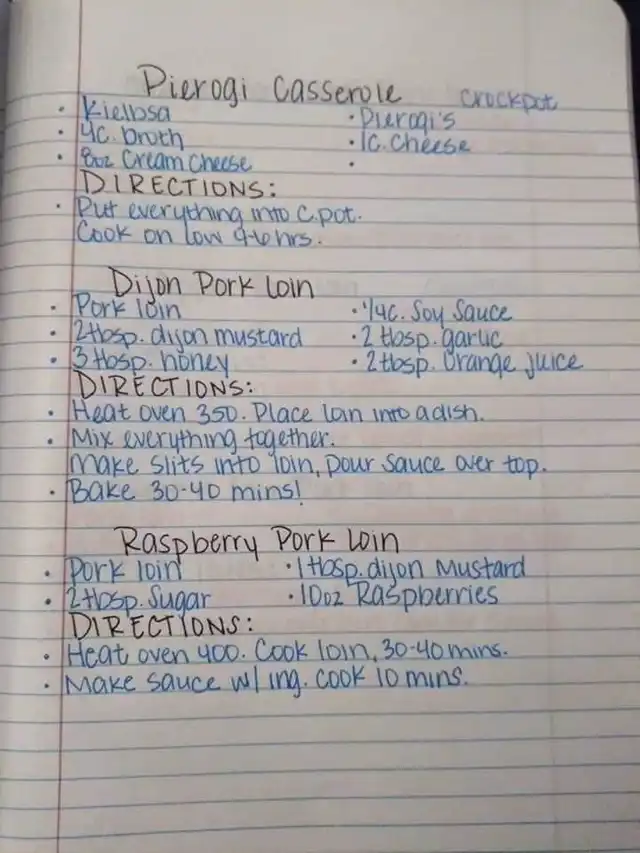 Pierogi Casserole crockpot
• Kielbsa • Pierogi's
• 4c. broth • 1c. Cheese
• 8oz Cream Cheese •
DIRECTIONS:
• Put everything into c.pot.
Cook on low 4-6 hrs.
Dijon Pork Loin
• Pork loin • 1/4c. Soy Sauce
• 2 tbsp. dijon mustard • 2 tbsp. garlic
• 3 tbsp. honey • 2 tbsp. Orange juice
DIRECTIONS:
• Heat oven 350. Place loin into a dish.
• Mix everything together.
Make slits into loin, pour sauce over top.
• Bake 30-40 mins!
Raspberry Pork Loin
• Pork loin • 1 tbsp. dijon Mustard
• 2 tbsp. Sugar • 10oz Raspberries
DIRECTIONS:
• Heat oven 400. Cook loin, 30-40 mins.
• Make sauce w/ ing. cook 10 mins.